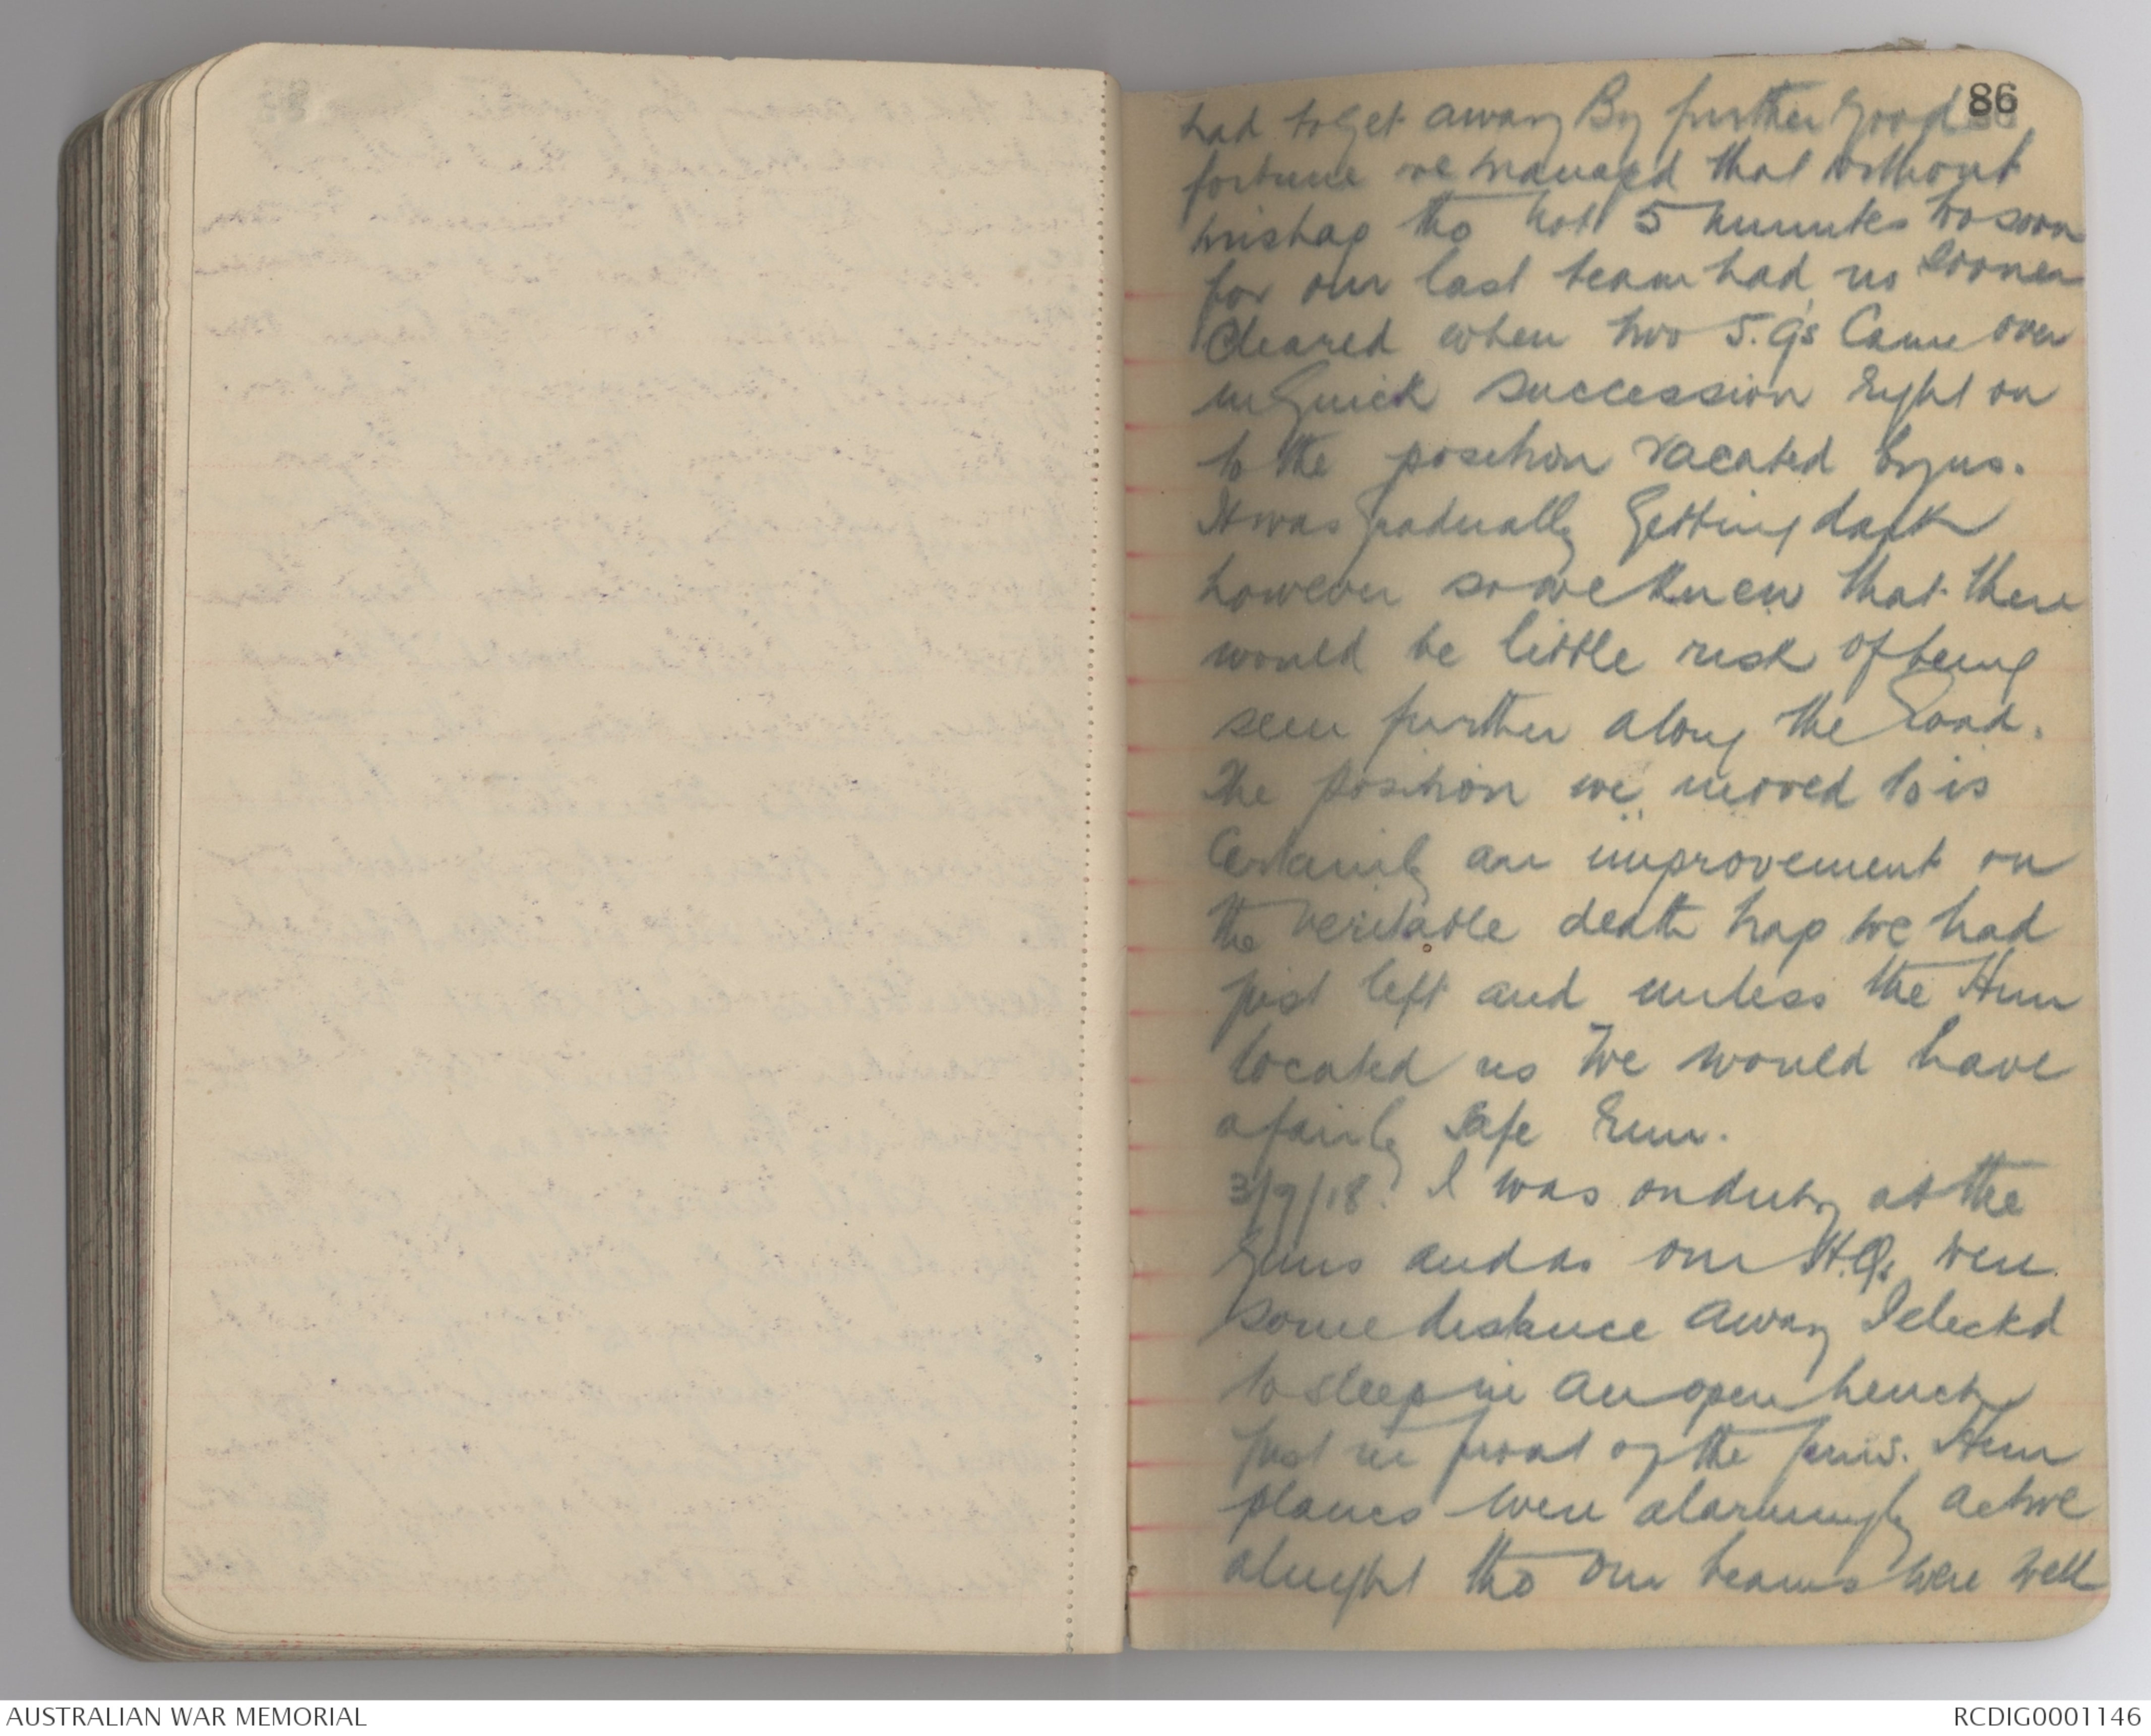 86
had to get away By further good
fortune we managed that without
mishap tho not 5 minutes too soon
for our last team had no sooner
cleared when two 5.9s Came over
in quick succession right on
to the position vacated by us.
It was gradually getting dark
however so we knew that there
would be little risk of being
seen further along the road.
The position we moved to is
Certainly an improvement on
the veritable death trap we had
just left and unless the Hun
located us we would have
a fairly safe run.
3/9/18. I was on duty at the
guns and as our H.Qs were
some distance away I elected
to sleep in an open trench
just in front of the guns. Hun
planes were alarmingly active
alnight tho our teams were well
AUSTRALIAN WAR MEMORIAL
RCDIG0001146